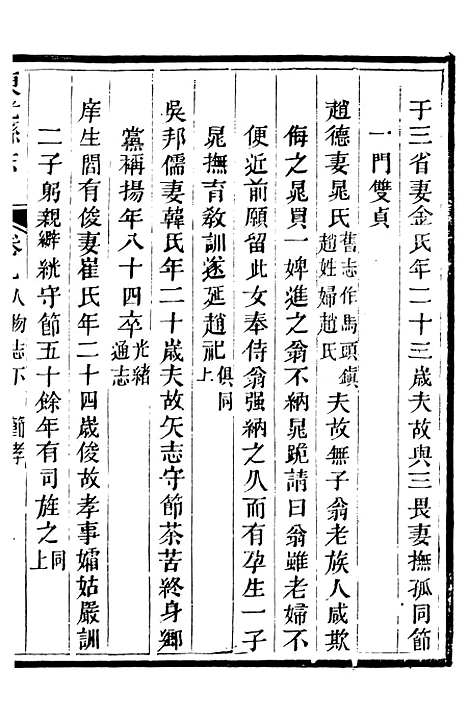 于三省妻金氏年二十三歲夫故與三畏妻撫孤同節
一門雙貞
趙德妻晁氏舊志作馬頭鎮趙姓婦趙氏夫故無子翁老族人咸欺
侮之晁買一婢進之翁不納晁跪請曰翁雖老婦不
便近前願留此女奉侍翁强納之久而有孕生一子
晁撫育敎訓遂延趙祀俱同上
吳邦儒妻韓氏年二十歲夫故矢志守節茶苦終身鄉
黨稱揚年八十四卒光緒通志
庠生閻有俊妻崔氏年二十四歲俊故孝事孀姑嚴訓
二子躬親縩絖守節五十餘年有司旌之同上
卷九人物志下 節孝